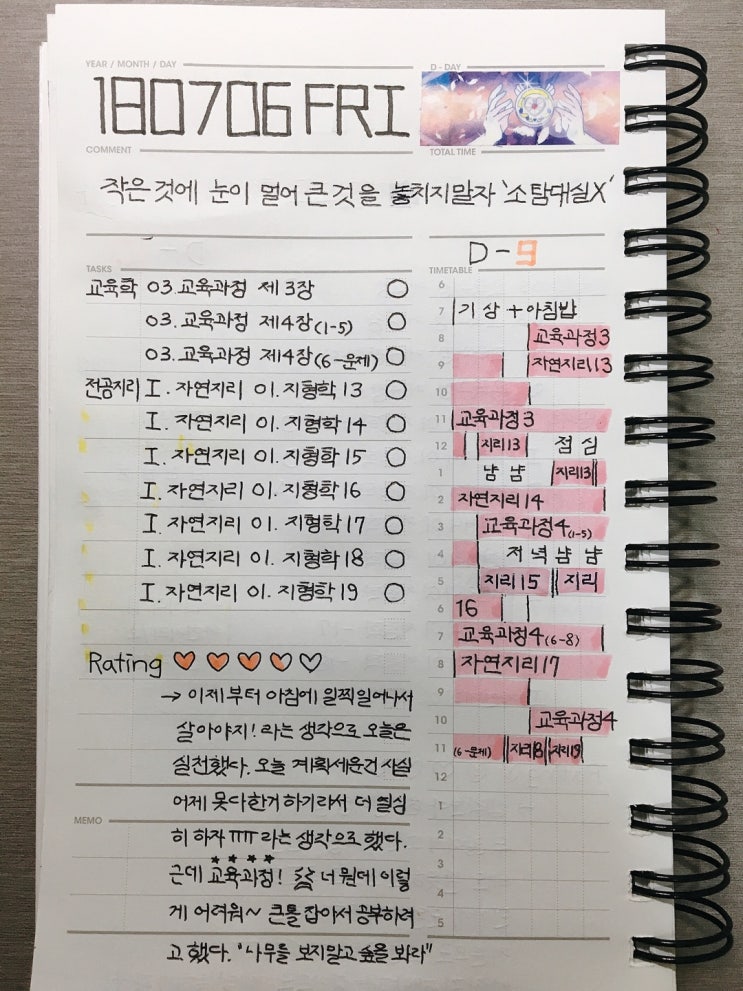 YEAR / MONTH / DAY
D - DAY
180706 FRI
COMMENT
TOTAL TIME
작은 것에 눈이 멀어 큰 것을 놓치지말자 '소탐대실X'
D-9
TASKS
교육학 03.교육과정 제3장
03.교육과정 제4장(1-5)
03.교육과정 제4장(6-문제)
전공지리 I. 자연지리 01. 지형학 13
I. 자연지리 01. 지형학 14
I. 자연지리 01. 지형학 15
I. 자연지리 01. 지형학 16
I. 자연지리 01. 지형학 17
I. 자연지리 01. 지형학 18
I. 자연지리 01. 지형학 19
Rating
→ 이제부터 아침에 일찍일어나서
살아야지! 라는 생각으로 오늘은
실천했다. 오늘 계획세운건 사실
어제 못다한거 하기라서 더 열심
MEMO
히 하자 ㅠㅠ 라는 생각으로 했다.
근데 교육과정! 너 뭔데 이렇
게 어려워~ 큰틀 잡아서 공부하려
고 했다. "나무를 보지말고 숲을 봐라"
TIMETABLE
6
7 기상 + 아침밥
8 교육과정3
9 자연지리13
10
11 교육과정3
12 지리13 점심
1 냠냠 지리13
2 자연지리14
3 교육과정4(1-5)
4 저녁냠냠
5 지리15 지리
6 16
7 교육과정4(6-8)
8 자연지리17
9
10 교육과정4
11 (6-문제) 지리18 지리19
12
1
2
3
4
5